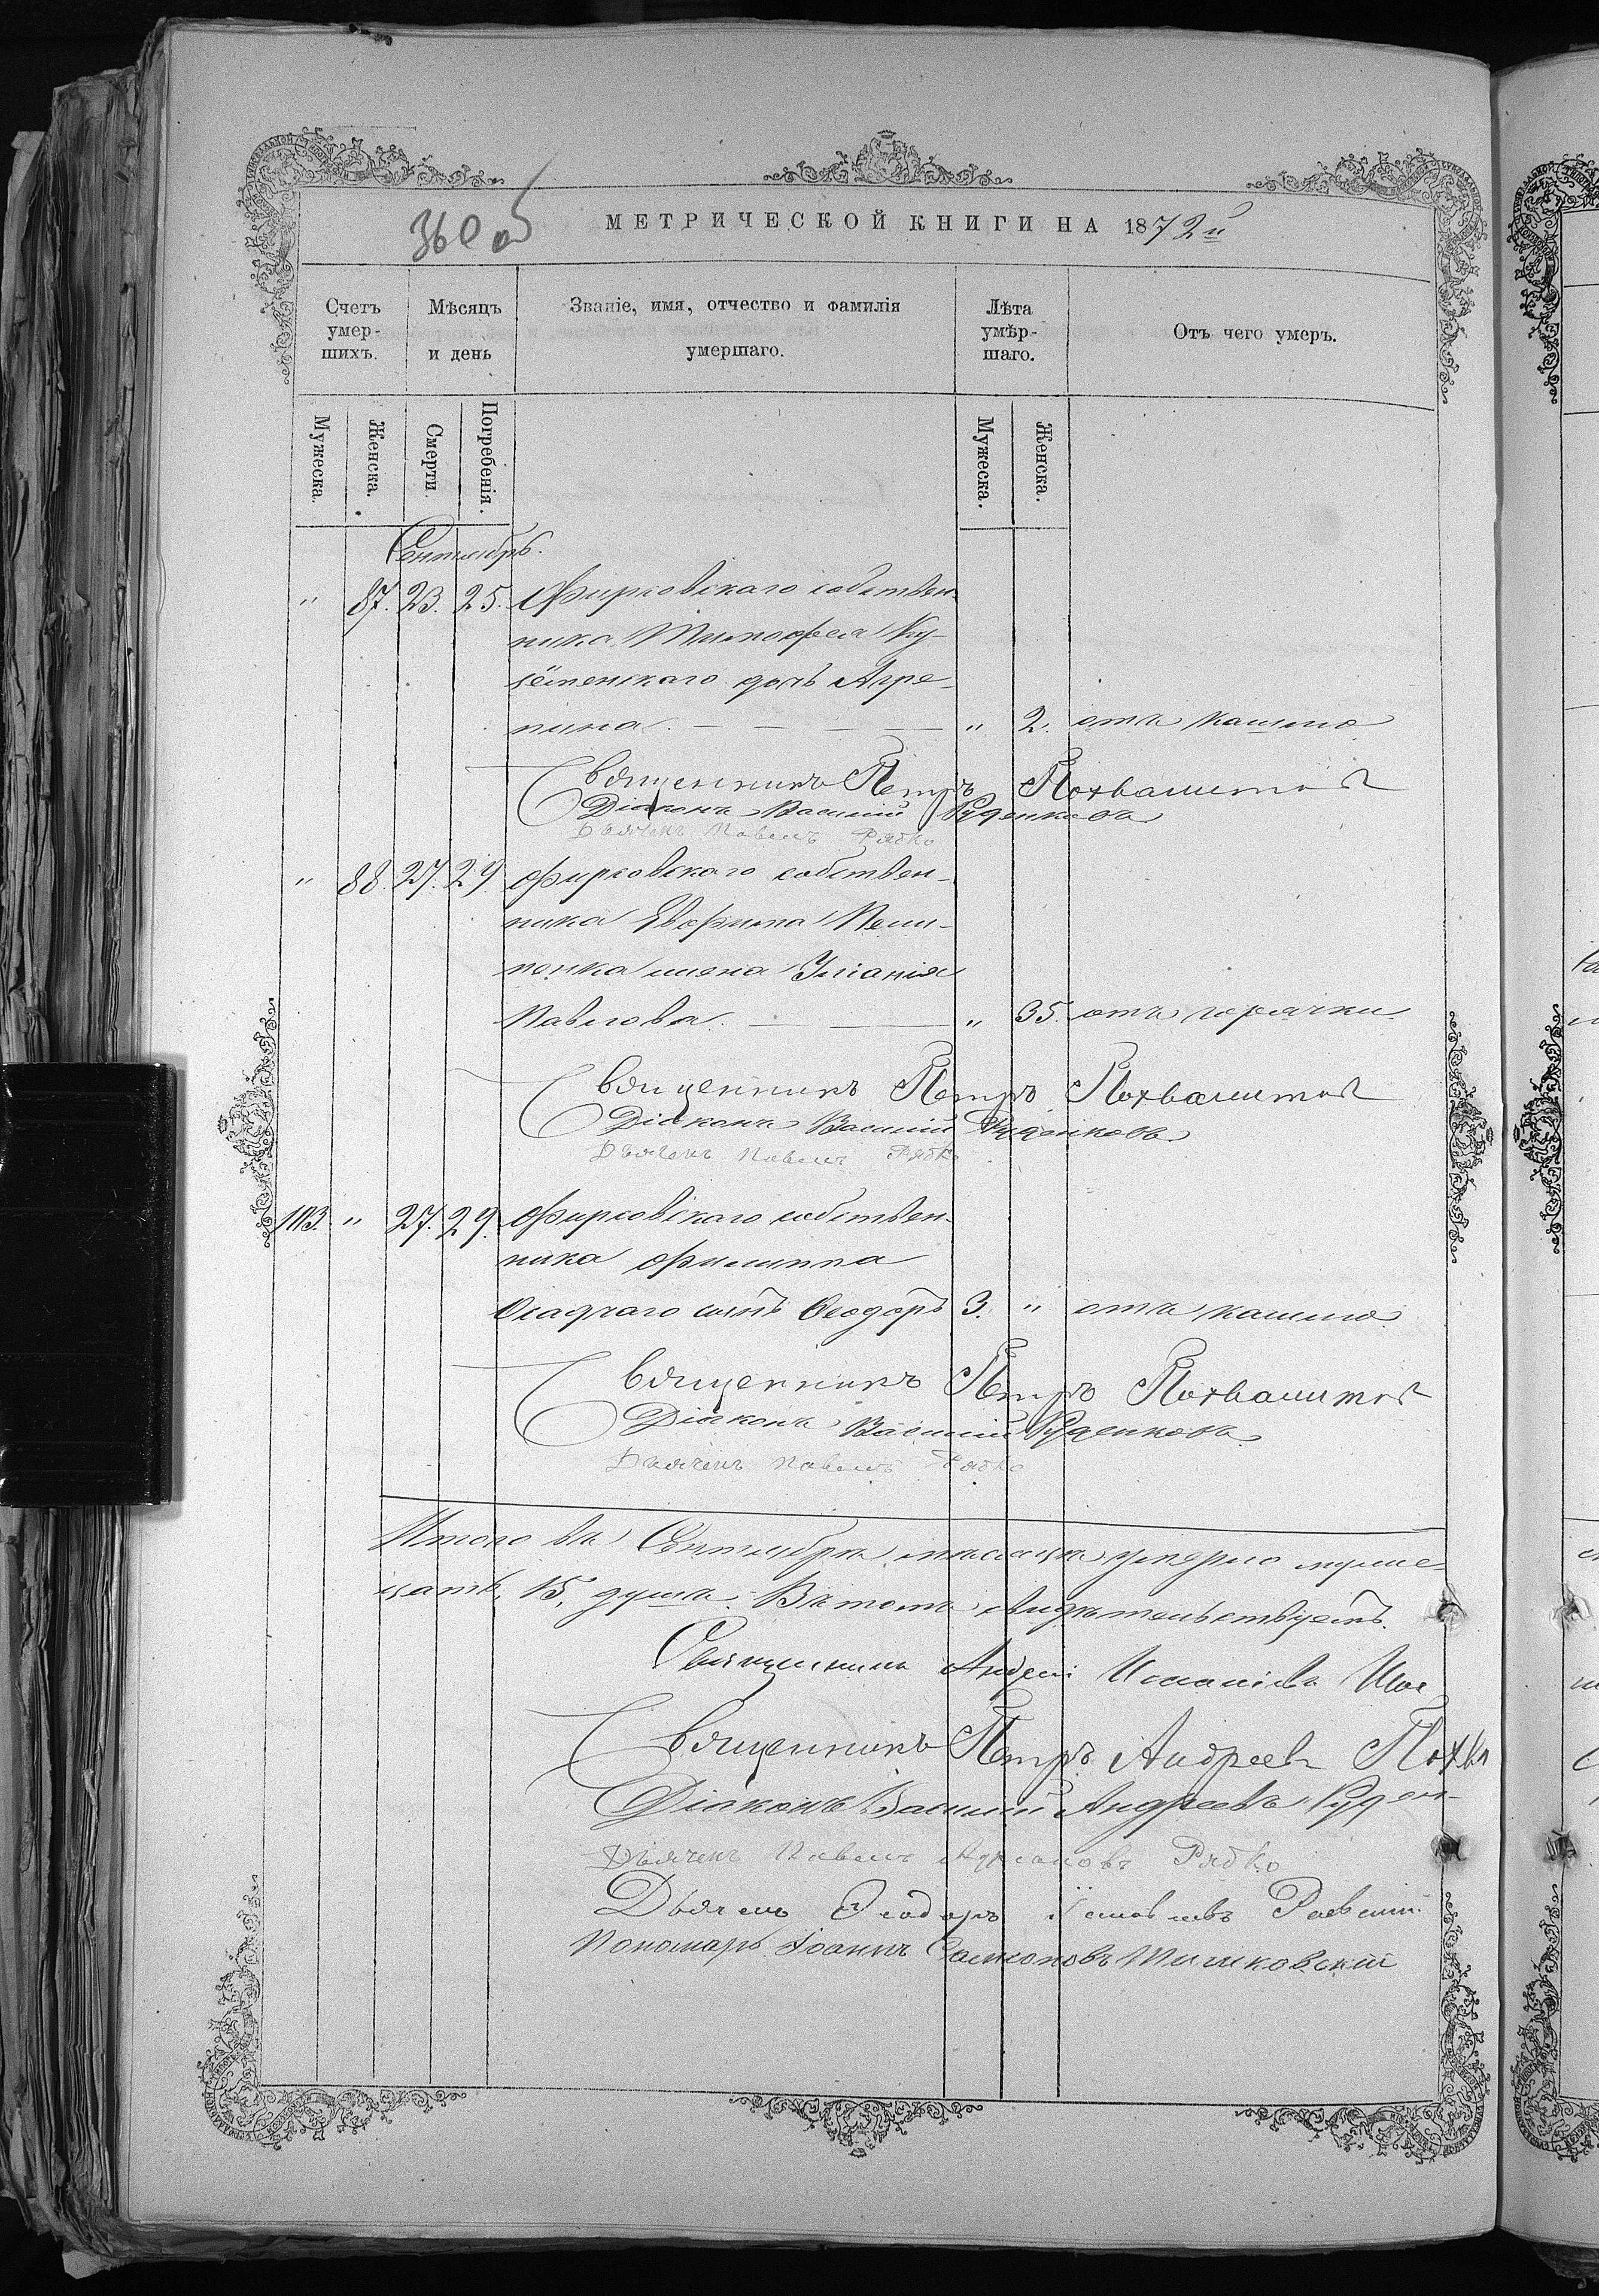 360 об
МЕТРИЧЕСКОЙ КНИГИ НА 1872й
Счетъ умер- шихъ.
Мѣсяцъ и день
Званіе, имя, отчество и фамилія умершаго.
Лѣта умѣр- шаго.
Отъ чего умеръ.
Мужеска. Женска. Смерти. Погребенія. Мужеска. Женска.
Сентябрь.
" 87. 23. 25. Фирковскаго собствен-
ника Тимофея
дочь Агре-
пина. — — — " 2. отъ кашлю
Священникъ Петръ Похвалитой
Діаконъ Василій Руденковъ
Дьячекъ Павелъ Рябко
" 88. 27. 29. Фирковского собствен-
ника Евфима
жена Уліанія
Павлова. — — " 35. отъ горячки.
Священникъ Петръ Похвалитой
Діаконъ Василій Руденковъ
Дьячокъ Павелъ Рябко
113. " 27. 29. Фирковскаго собствен-
ника Филиппа
Осадчаго сынъ Ѳеодоръ 3. " отъ кашлю.
Священникъ Петръ Похвалитой
Діаконъ Василій Руденковъ
Дьячекъ Павелъ Рябко
Итого въ Сентябрѣ мѣсяцѣ умерло
15, душъ. Въ томъ свидѣтельствуемъ.
Священникъ Андрей
Священникъ Петръ Андреевъ Похва
Діаконъ Василій Андреевъ Руден-
Дьячекъ Павелъ Рябко
Дьячекъ Ѳеодоръ
Пономарь Іоаннъ Самсоновъ